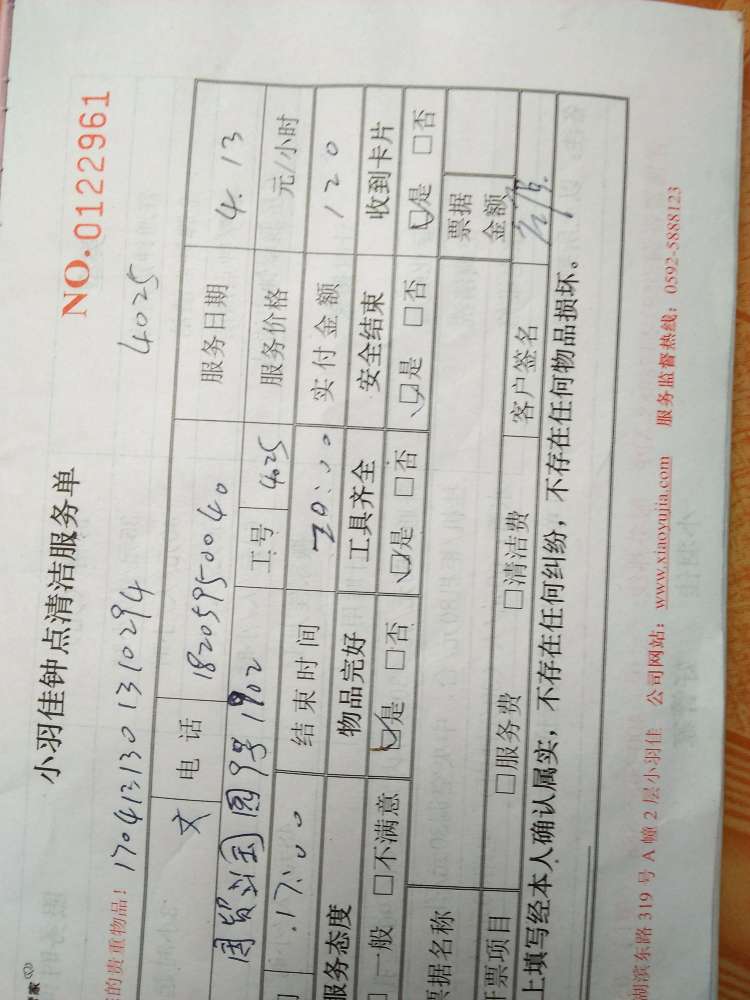 家
小羽佳钟点清洁服务单
NO.0122961
的贵重物品！ 170413130131029４ 4025
文 电话 18205950040 服务日期 4.13
国贸 国 园 9号1902 工号 4025 服务价格 元/小时
17:00 结束时间 20:00 实付金额 120
服务态度 物品完好 工具齐全 安全结束 收到卡片
□一般 □不满意 ☑是 □否 ☑是 □否 ☑是 □否 ☑是 □否
票据名称 票据金额
开票项目 □服务费 □清洁费 客户签名
上填写经本人确认属实，不存在任何纠纷，不存在任何物品损坏。
湖滨东路 319 号 A 幢 2 层小羽佳 公司网站：www.xiaoyujia.com 服务监督热线：0592-5888123